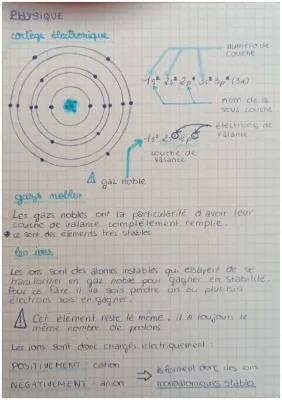 PHYSIQUE
cortège électronique
numéro de
couche
1s² 2s² 2p⁶ 3s² 3p⁶ (3d)
nom de la
sous couche
électrons de
valance
1s² 2s² 2p⁶
couche de
valance
gaz noble
gazs nobles
Les gazs nobles ont la particularité d'avoir leur
couche de valance complètement remplie.
* ce sont des éléments très stables
les ions
Les ions sont des atomes instables qui essayent de se
transformer en gaz noble pour gagner en stabilité.
Pour ce faire il va sois perdre un ou plusieurs
électrons sois en gagner.
Cet élément reste le meme, il a toujours le
même nombre de protons
Les ions sont donc chargés electriquement :
POSITIVEMENT : cation
NÉGATIVEMENT : anion
ils forment donc des ions
monoatomiques stables